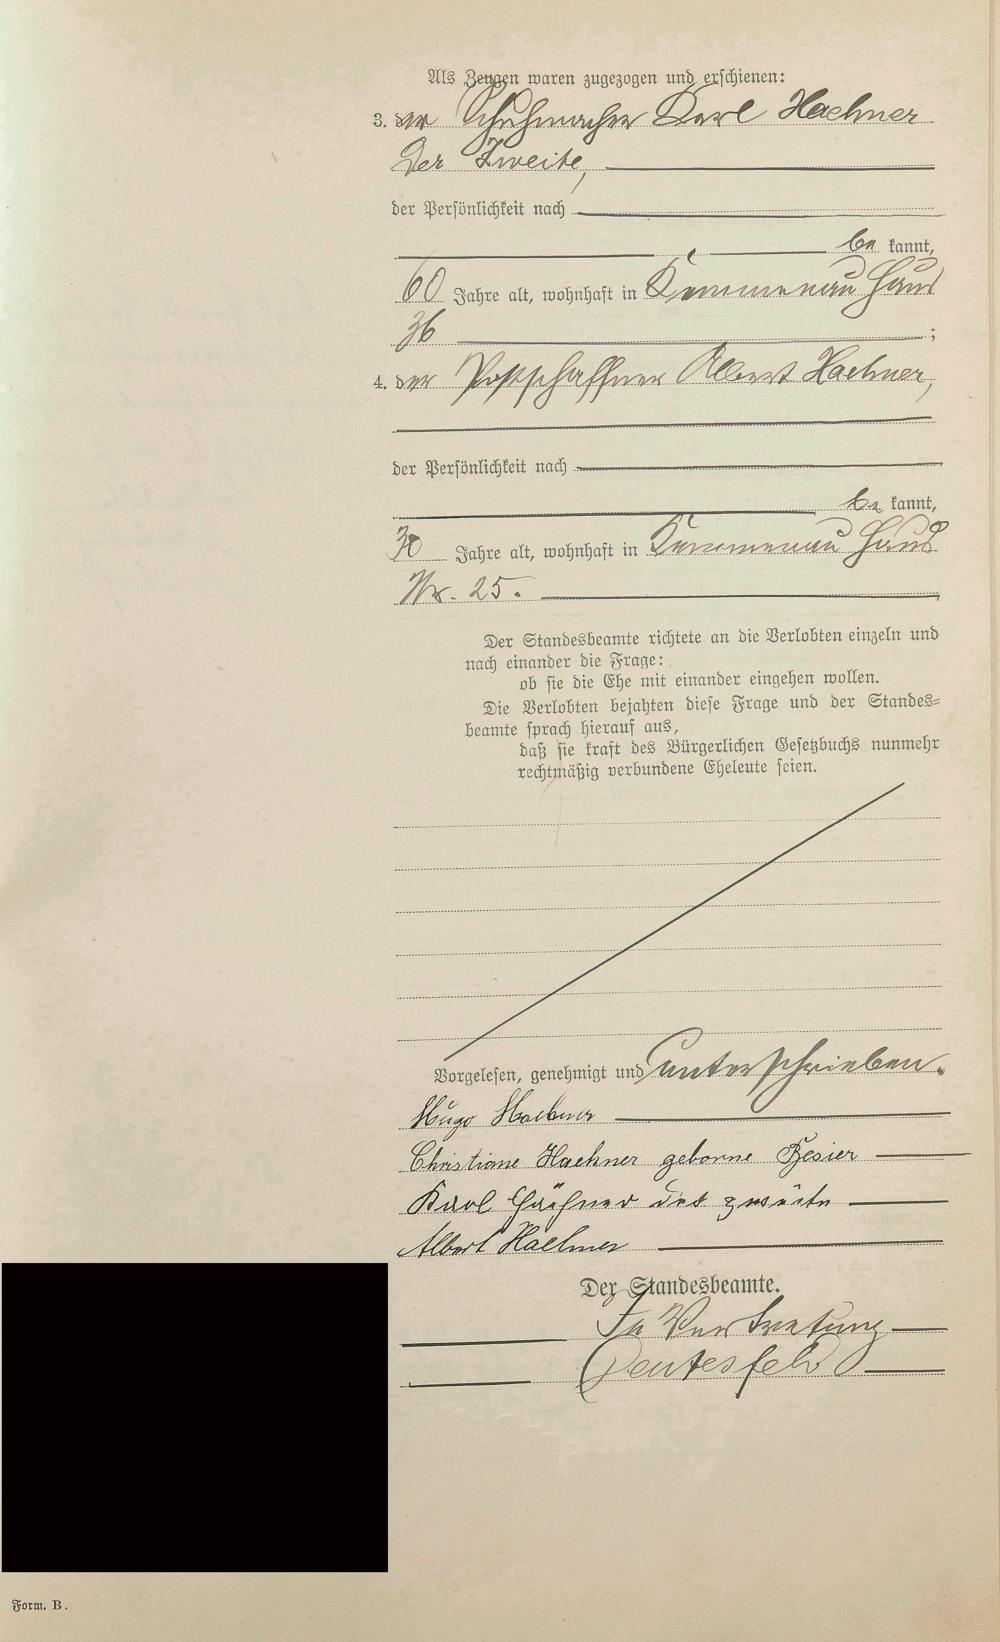 Als Zeugen waren zugezogen und erschienen:
3. der Schuhmacher Karl Haehner
der Zweite,
der Persönlichkeit nach
be kannt,
60 Jahre alt, wohnhaft in Kemmenau Haus
36 ;
4. der Postschaffner Albert Haehner,
der Persönlichkeit nach
be kannt,
30 Jahre alt, wohnhaft in Kemmenau Haus
Nr. 25.
Der Standesbeamte richtete an die Verlobten einzeln und
nach einander die Frage:
ob sie die Ehe mit einander eingehen wollen.
Die Verlobten bejahten diese Frage und der Standes-
beamte sprach hierauf aus,
daß sie kraft des Bürgerlichen Gesetzbuchs nunmehr
rechtmäßig verbundene Eheleute seien.
Vorgelesen, genehmigt und unterschrieben.
Hugo Haehner
Christiane Haehner geborne
Karl Hähner der zweite
Albert Haehner
Der Standesbeamte.
In Vertretung
Deutesfeld
Form. B.